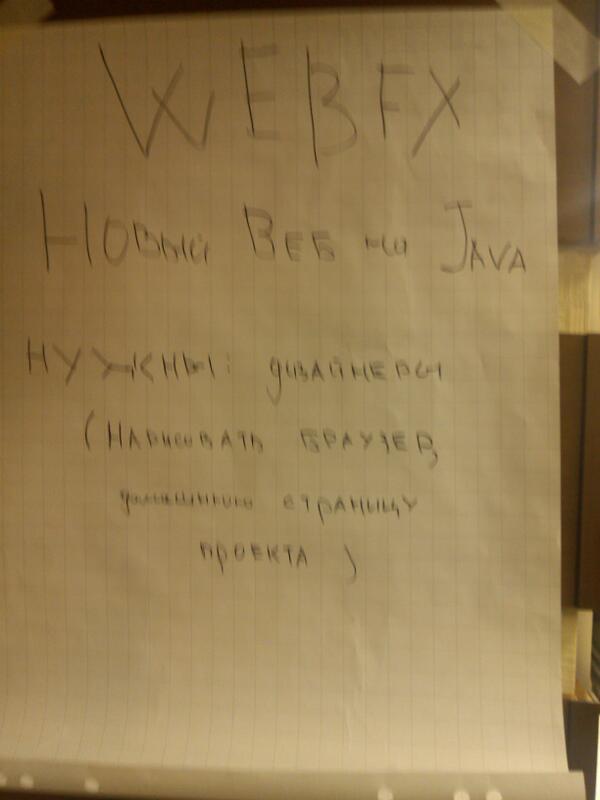 WEBFX
Новый Веб на Java
нужны: дизайнеры
(нарисовать браузер,
домашнюю страницу
проекта)